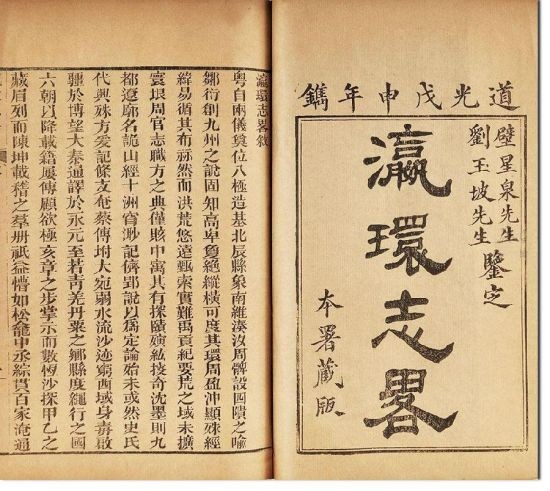 道光戊申年鐫
壁星泉先生
劉玉坡先生
鑒定
瀛環志畧
本署藏版
瀛環志畧敘
粵自兩儀奠位八極造基北辰縣象南維湊沒周髀設四隤之喻
鄒衍創九州之說固知高卑夐絕縱橫可度其環周盈沖顯殊經
緯易循其布然而洪荒悠遠甄索實難禹貢紀要荒之域未擴
寰垠周官志職方之典僅賅中寓其有探賾紘技奇沈墨則九
都遼廓名詭山經十洲渺記儕郢說以為定論殆未或然史氏
代興殊方爰記條支奄蔡傳坿大宛弱水流沙迹窮西域身毒啟
疆於博望大秦通譯於永元至若青羌丹粟之鄉縣度繩行之國
六朝以降載籍屢傳顧欲極亥章之步掌示而數恆沙探甲乙之
藏眉列而陳坤載稽之羣册祗益懵如松龕中丞綜貫百家淹通